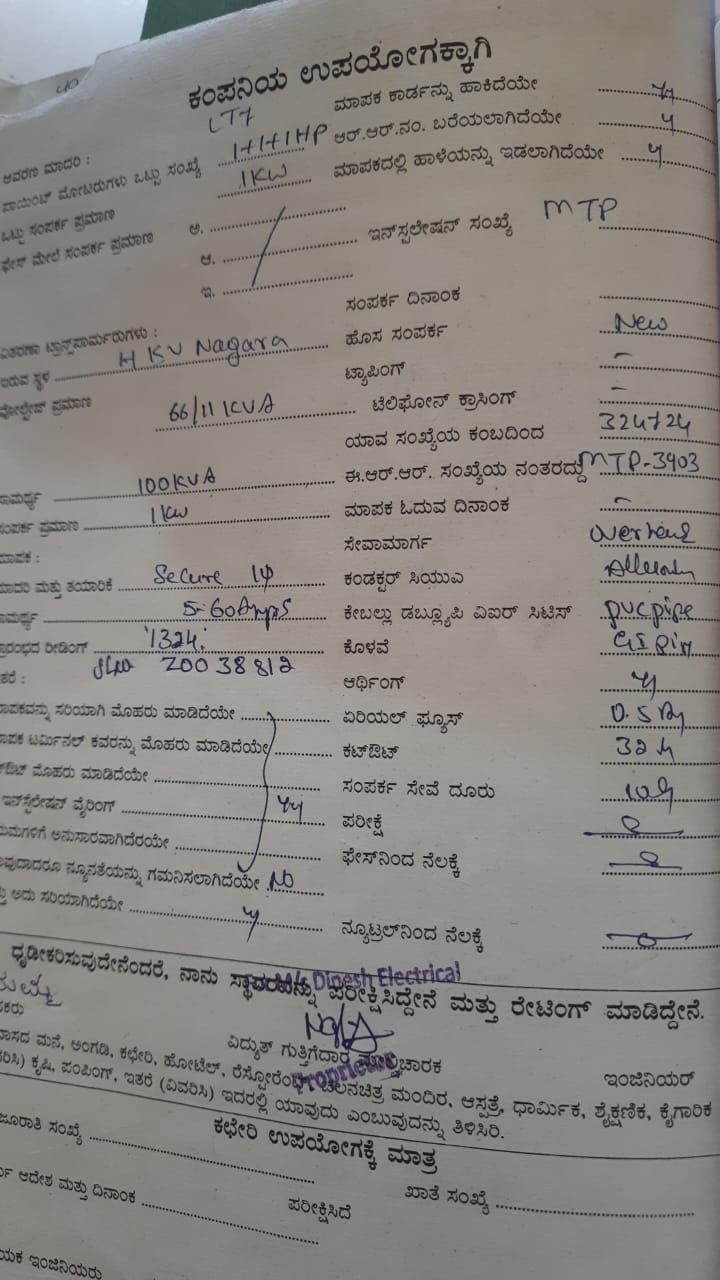 40
ಕಂಪನಿಯ ಉಪಯೋಗಕ್ಕಾಗಿ
ಆವರಣ ಮಾದರಿ : LT7 ಮಾಪಕ ಕಾರ್ಡನ್ನು ಹಾಕಿದೆಯೇ
ಪಾಯಿಂಟ್ ಮೋಟರುಗಳು ಒಟ್ಟು ಸಂಖ್ಯೆ 1+1+1HP ಆರ್.ಆರ್.ನಂ. ಬರೆಯಲಾಗಿದೆಯೇ y
ಒಟ್ಟು ಸಂಪರ್ಕ ಪ್ರಮಾಣ 1KW ಮಾಪಕದಲ್ಲಿ ಹಾಳೆಯನ್ನು ಇಡಲಾಗಿದೆಯೇ y
ಫೇಸ್ ಮೇಲೆ ಸಂಪರ್ಕ ಪ್ರಮಾಣ ಅ.
ಆ. ಇನ್‌ಸ್ಪಲೇಷನ್ ಸಂಖ್ಯೆ MTP
ಇ.
ಸಂಪರ್ಕ ದಿನಾಂಕ
ವಿತರಣಾ ಟ್ರಾನ್ಸ್‌ಫಾರ್ಮರುಗಳು : ಹೊಸ ಸಂಪರ್ಕ New
ಇರುವ ಸ್ಥಳ H KV Nagara ಟ್ಯಾಪಿಂಗ್ –
ವೋಲ್ಟೇಜ್ ಪ್ರಮಾಣ 66/11 KVA ಟೆಲಿಫೋನ್ ಕ್ರಾಸಿಂಗ್ –
ಯಾವ ಸಂಖ್ಯೆಯ ಕಂಬದಿಂದ 324724
ಸಾಮರ್ಥ್ಯ 100KVA ಈ.ಆರ್.ಆರ್. ಸಂಖ್ಯೆಯ ನಂತರದ್ದು MTP-3903
ಸಂಪರ್ಕ ಪ್ರಮಾಣ 1KW ಮಾಪಕ ಓದುವ ದಿನಾಂಕ –
ಮಾಪಕ : ಸೇವಾಮಾರ್ಗ
ಮಾದರಿ ಮತ್ತು ತಯಾರಿಕೆ Secure 1φ ಕಂಡಕ್ಟರ್ ಸಿಯುಎ
ಸಾಮರ್ಥ್ಯ 5-60Amps ಕೇಬಲ್ಲು ಡಬ್ಲ್ಯೂಪಿ ವಿಐರ್ ಸಿಟಿಸ್ pvcpipe
ಪ್ರಾರಂಭದ ರೀಡಿಂಗ್ 1324. ಕೊಳವೆ
ಇತರೆ : slno 20038812 ಆರ್ಥಿಂಗ್ y
ಮಾಪಕವನ್ನು ಸರಿಯಾಗಿ ಮೊಹರು ಮಾಡಿದೆಯೇ ಏರಿಯಲ್ ಫ್ಯೂಸ್
ಮಾಪಕ ಟರ್ಮಿನಲ್ ಕವರನ್ನು ಮೊಹರು ಮಾಡಿದೆಯೇ ಕಟ್‌ಔಟ್ 32
ಕಟ್‌ಔಟ್ ಮೊಹರು ಮಾಡಿದೆಯೇ ಸಂಪರ್ಕ ಸೇವೆ ದೂರು
ಇನ್‌ಸ್ಟಲೇಷನ್ ವೈರಿಂಗ್ ಪರೀಕ್ಷೆ
ನಿಯಮಗಳಿಗೆ ಅನುಸಾರವಾಗಿದೆರೆಯೇ ಫೇಸ್‌ನಿಂದ ನೆಲಕ್ಕೆ
ಯಾವುದಾದರೂ ನ್ಯೂನತೆಯನ್ನು ಗಮನಿಸಲಾಗಿದೆಯೇ NO
ಮತ್ತು ಅದು ಸರಿಯಾಗಿದೆಯೇ y ನ್ಯೂಟ್ರಲ್‌ನಿಂದ ನೆಲಕ್ಕೆ
ಧೃಡೀಕರಿಸುವುದೇನೆಂದರೆ, ನಾನು ಸ್ಥಾವರವನ್ನು ಪರೀಕ್ಷಿಸಿದ್ದೇನೆ ಮತ್ತು ರೇಟಿಂಗ್ ಮಾಡಿದ್ದೇನೆ.
Dinesh Electrical
ವಿದ್ಯುತ್ ಗುತ್ತಿಗೆದಾರ ಮೇಲ್ವಿಚಾರಕ ಇಂಜಿನಿಯರ್
Proprietor
ವಾಸದ ಮನೆ, ಅಂಗಡಿ, ಕಛೇರಿ, ಹೋಟೆಲ್, ರೆಸ್ಟೋರೆಂಟ್, ಚಲನಚಿತ್ರ ಮಂದಿರ, ಆಸ್ಪತ್ರೆ, ಧಾರ್ಮಿಕ, ಶೈಕ್ಷಣಿಕ, ಕೈಗಾರಿಕ
ಕೃಷಿ, ಪಂಪಿಂಗ್, ಇತರೆ (ವಿವರಿಸಿ) ಇದರಲ್ಲಿ ಯಾವುದು ಎಂಬುವುದನ್ನು ತಿಳಿಸಿರಿ.
ಕಛೇರಿ ಉಪಯೋಗಕ್ಕೆ ಮಾತ್ರ
ಮಂಜೂರಾತಿ ಸಂಖ್ಯೆ ಖಾತೆ ಸಂಖ್ಯೆ
ಆದೇಶ ಮತ್ತು ದಿನಾಂಕ ಪರೀಕ್ಷಿಸಿದೆ
ಇಂಜಿನಿಯರು